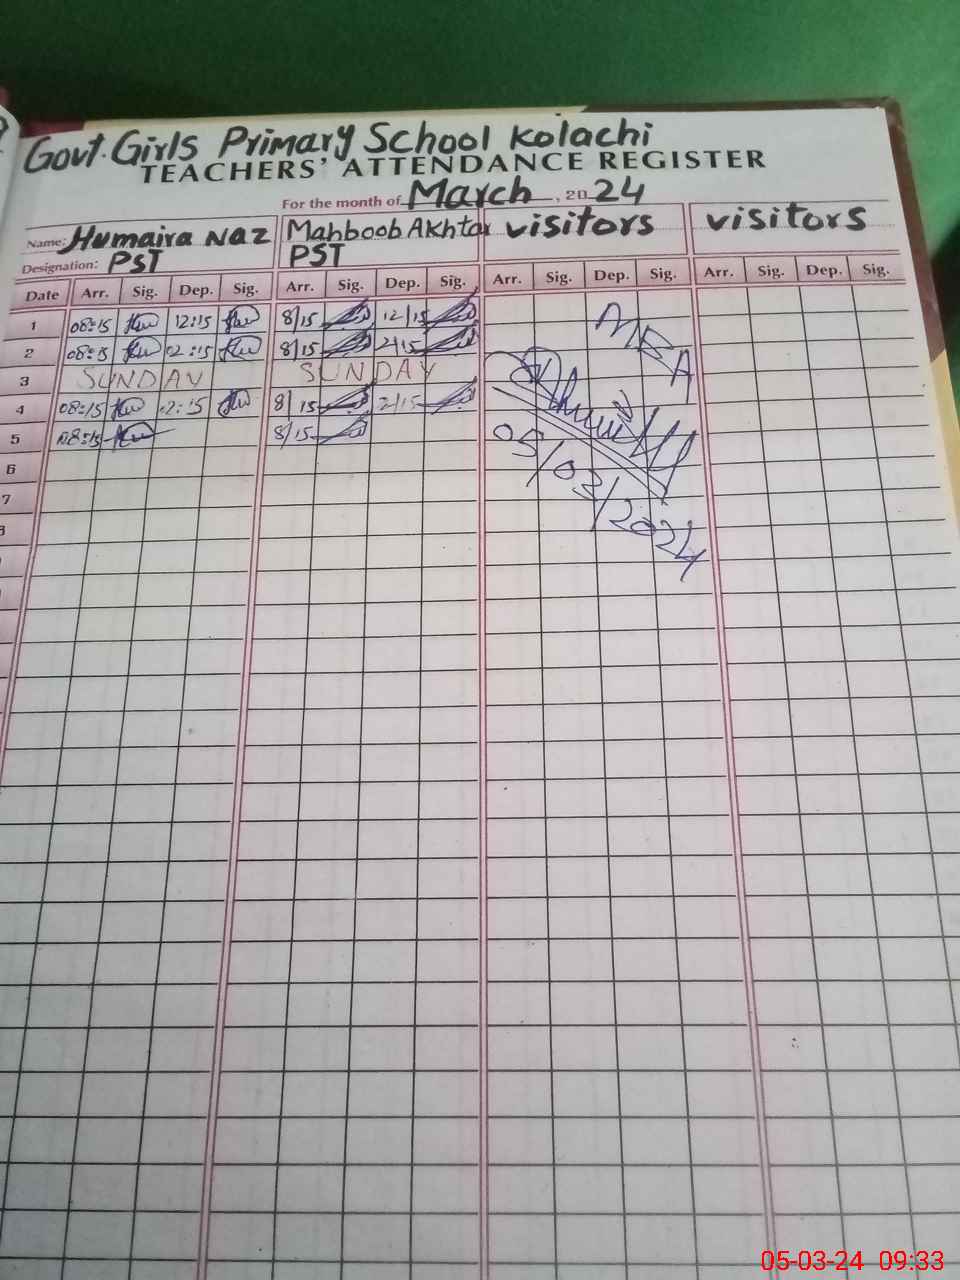 Govt. Girls Primary School Kolachi
TEACHERS' ATTENDANCE REGISTER
For the month of March, 2024
Name: Humaira Naz Mahboob Akhtar visitors visitors
Designation: PST PST
Date Arr. Sig. Dep. Sig. Arr. Sig. Dep. Sig. Arr. Sig. Dep. Sig. Arr. Sig. Dep. Sig.
1 08:15 12:15 8/15 12/15
2 08:15 02:15 8/15 2/15
3 SUNDAY SUNDAY
4 08:15 02:15 8/15 2/15
5 08:15 8/15
6
7
8
MEA
05/03/2024
05-03-24 09:33